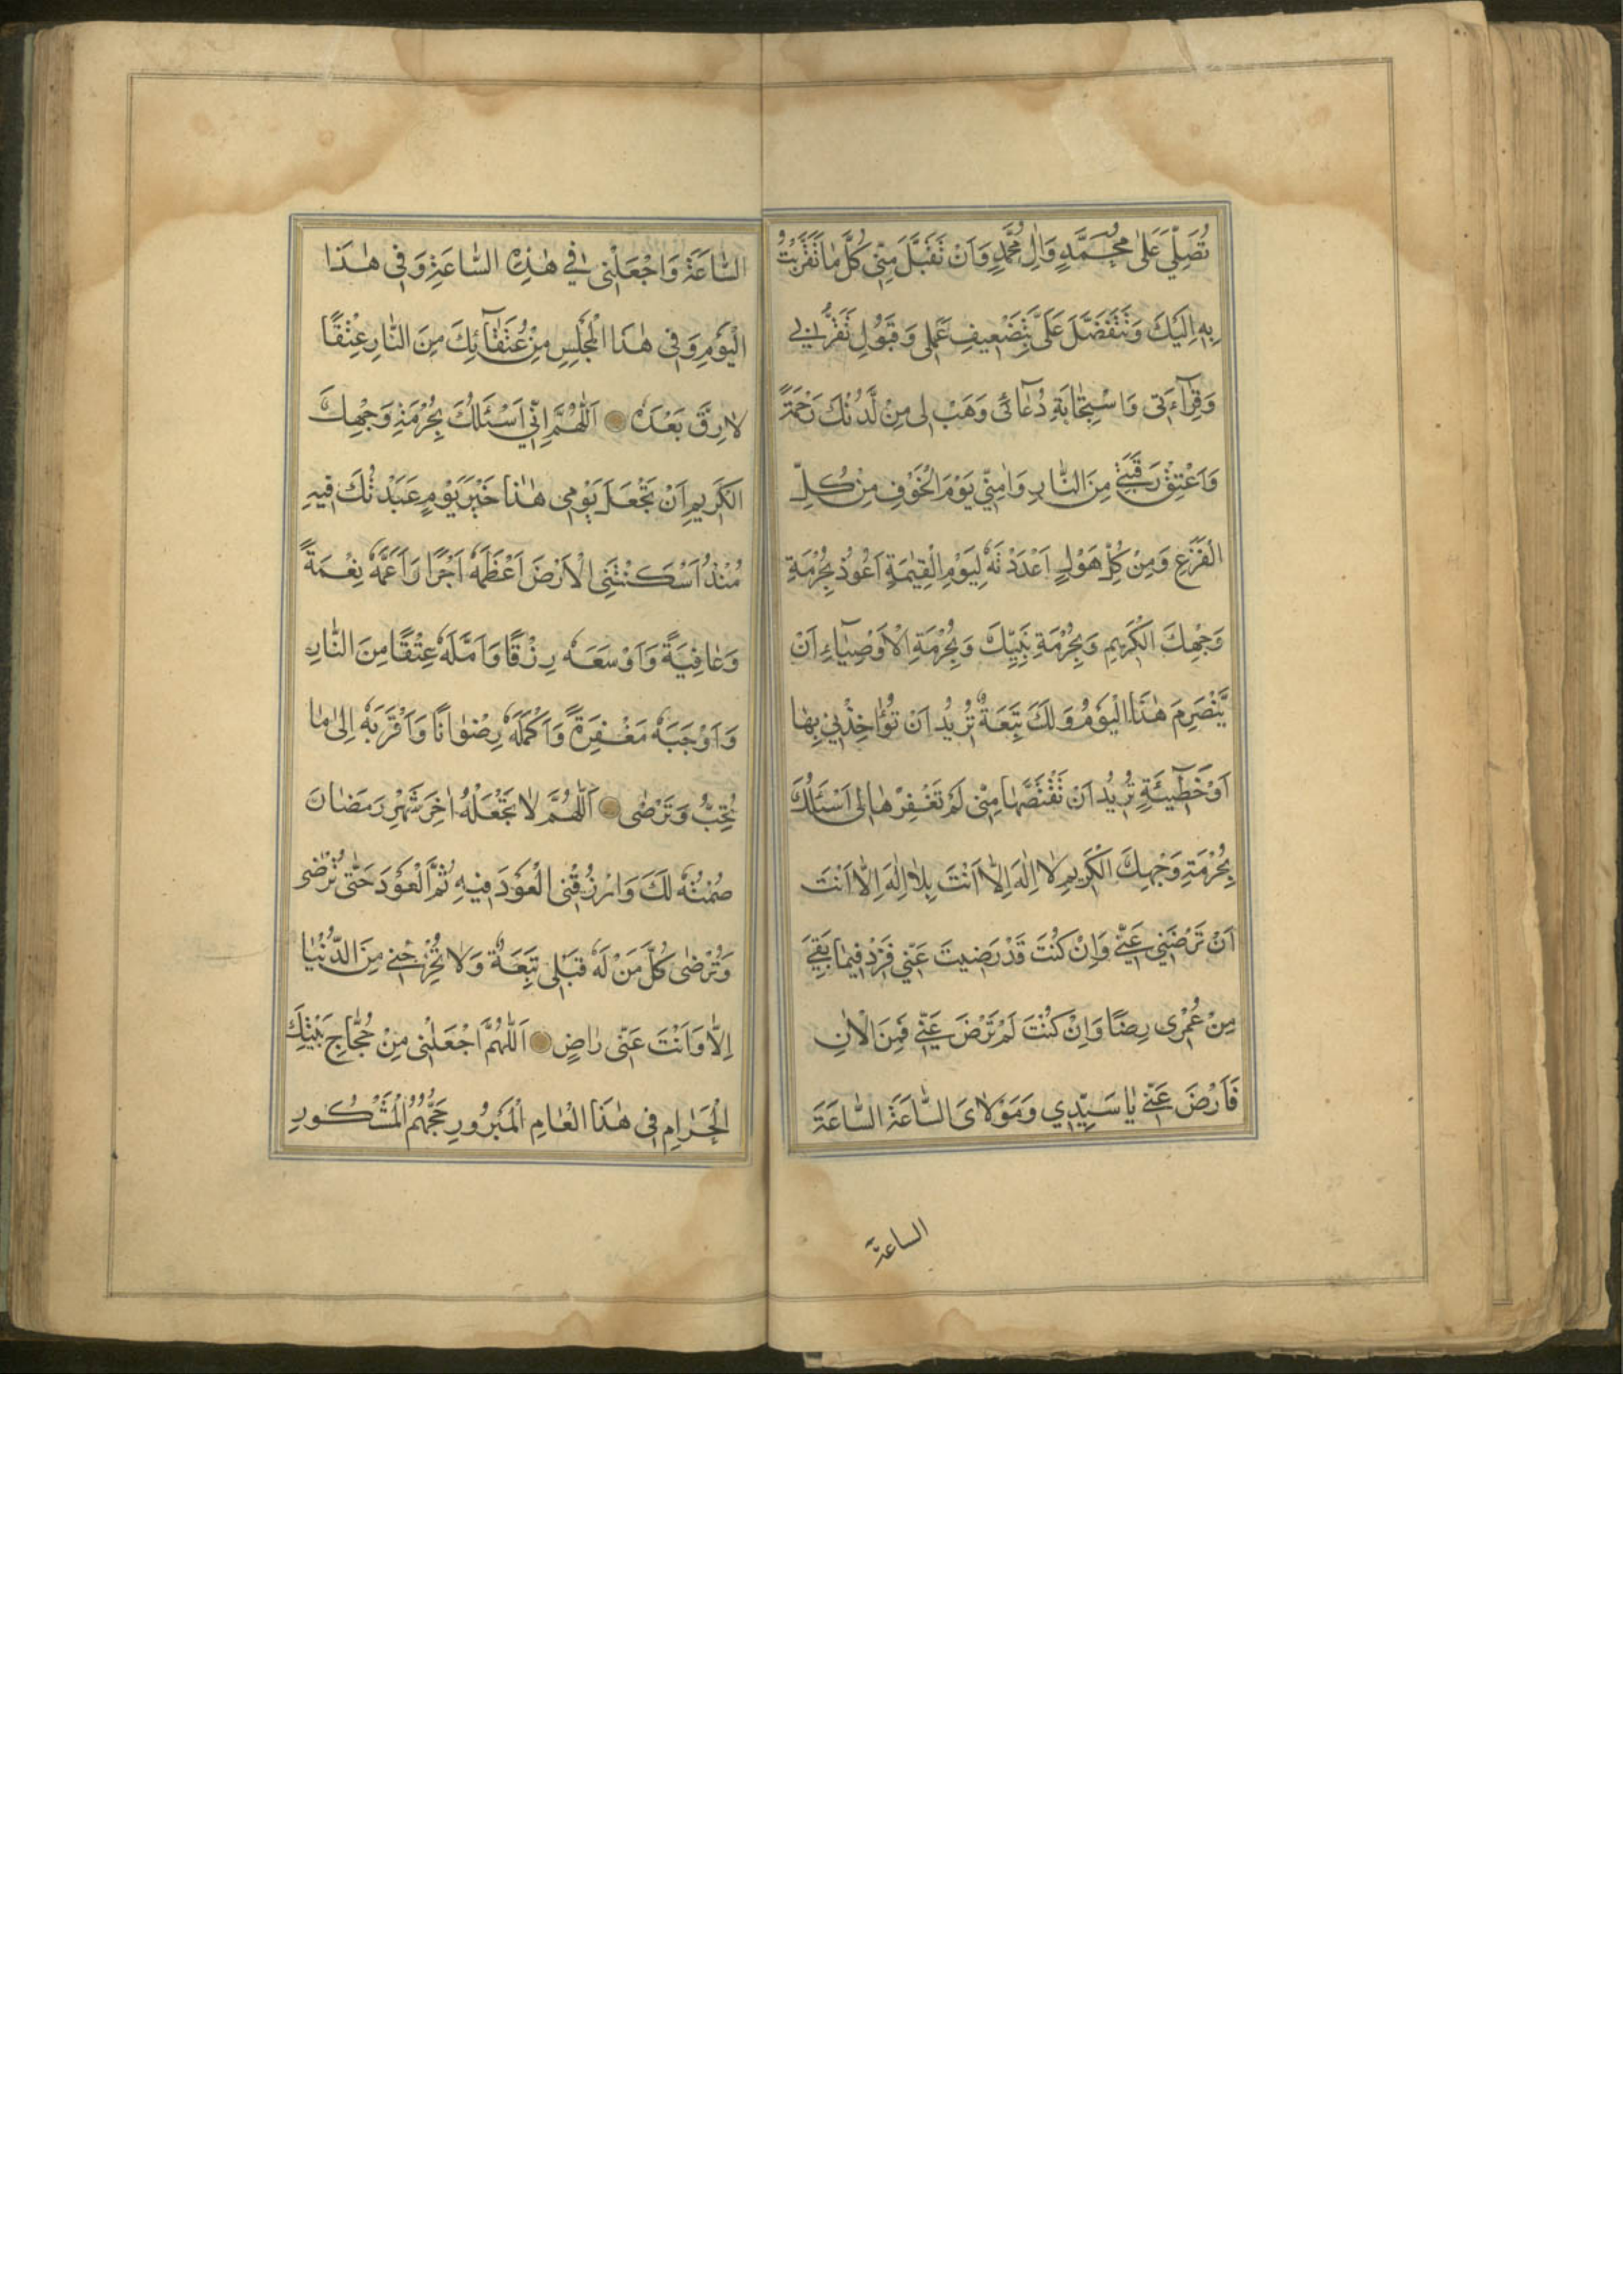 تُصَلِّيَ عَلىٰ مُحَمَّدٍ وَاٰلِ مُحَمَّدٍ وَاَنْ تَقَبَّلَ مِنّى كُلَّ مٰا تَقَرَّبْتُ
بِهِ اِلَيْكَ وَتَتَفَضَّلَ عَلَىَّ بِتَضْعِيفِ عَمَلِى وَقَبُولِ تَقَرُّبى
وَقِرٰآءَتى وَاسْتِجٰابَةِ دُعٰآئى وَهَبْ لِى مِنْ لَّدُنْكَ رَحْمَةً
وَاَعْتِقْ رَقَبَتى مِنَ النّٰارِ وَاٰمِنّى يَوْمَ الْخَوْفِ مِنْ كُلِّ
الْفَزَعِ وَمِنْ كُلِّ هَوْلٍ اَعْدَدْتَهُ لِيَوْمِ الْقِيٰمَةِ اَعُوذُ بِحُرْمَةِ
وَجْهِكَ الْكَرِيمِ وَبِحُرْمَةِ نَبِيِّكَ وَبِحُرْمَةِ الْاَوْصِيٰآءِ اَنْ
يَّنْصَرِمَ هٰذَا الْيَوْمُ وَلَكَ تَبِعَةٌ تُرِيدُ اَنْ تُؤٰاخِذَنِي بِهٰا
اَوْ خَطٓيئَةٍ تُرِيدُ اَنْ تَقْتَصَّهٰا مِنّى لَمْ تَغْفِرْهٰا لِى اَسْئَلُكَ
بِحُرْمَةِ وَجْهِكَ الْكَرِيمِ لٰا اِلٰهَ اِلّٰا اَنْتَ بِلٰا اِلٰهَ اِلّٰا اَنْتَ
اَنْ تَرْضٰى عَنّى وَاِنْ كُنْتَ قَدْ رَضِيتَ عَنّى فَزِدْ فِيمٰا بَقِيَ
مِنْ عُمْرِى رِضًا وَاِنْ كُنْتَ لَمْ تَرْضَ عَنّى فَمِنَ الْاٰنِ
فَارْضَ عَنّى يٰا سَيِّدِي وَمَوْلٰاىَ السّٰاعَةَ السّٰاعَةَ
الساعة
السّٰاعَةَ وَاجْعَلْنِى فِي هٰذِهِ السّٰاعَةِ وَفِى هٰذَا
الْيَوْمِ وَفِى هٰذَا الْمَجْلِسِ مِنْ عُتَقٰآئِكَ مِنَ النّٰارِ عِتْقًا
لٰا رِقَّ بَعْدَهُ اَللّٰهُمَّ اِنّي اَسْئَلُكَ بِحُرْمَةِ وَجْهِكَ
الْكَرِيمِ اَنْ تَجْعَلَ يَوْمِى هٰذٰا خَيْرَ يَوْمٍ عَبَدْتُكَ فِيهِ
مُنْذُ اَسْكَنْتَنِى الْاَرْضَ اَعْظَمَهُ اَجْرًا وَاَعَمَّهُ نِعْمَةً
وَعٰافِيَةً وَاَوْسَعَهُ رِزْقًا وَاَمَّلَهُ عِتْقًا مِنَ النّٰارِ
وَاَوْجَبَهُ مَغْفِرَةً وَاَكْمَلَهُ رِضْوٰانًا وَاَقْرَبَهُ اِلىٰ مٰا
تُحِبُّ وَتَرْضٰى اَللّٰهُمَّ لٰا تَجْعَلْهُ اٰخِرَ شَهْرِ رَمَضٰانَ
صُمْتُهُ لَكَ وَارْزُقْنِى الْعَوْدَ فِيْهِ ثُمَّ الْعَوْدَ حَتّٰى تَرْضٰى
وَتُرْضٰى كُلَّ مَنْ لَهُ قِبَلِى تَبِعَةٌ وَلٰا تُخْرِجْنِى مِنَ الدُّنْيٰا
اِلّٰا وَاَنْتَ عَنّى رٰاضٍ اَللّٰهُمَّ اجْعَلْنِى مِنْ حُجّٰاجِ بَيْتِكَ
الْحَرٰامِ فِى هٰذَا الْعٰامِ الْمَبْرُورِ حَجُّهُمُ الْمَشْكُورِ